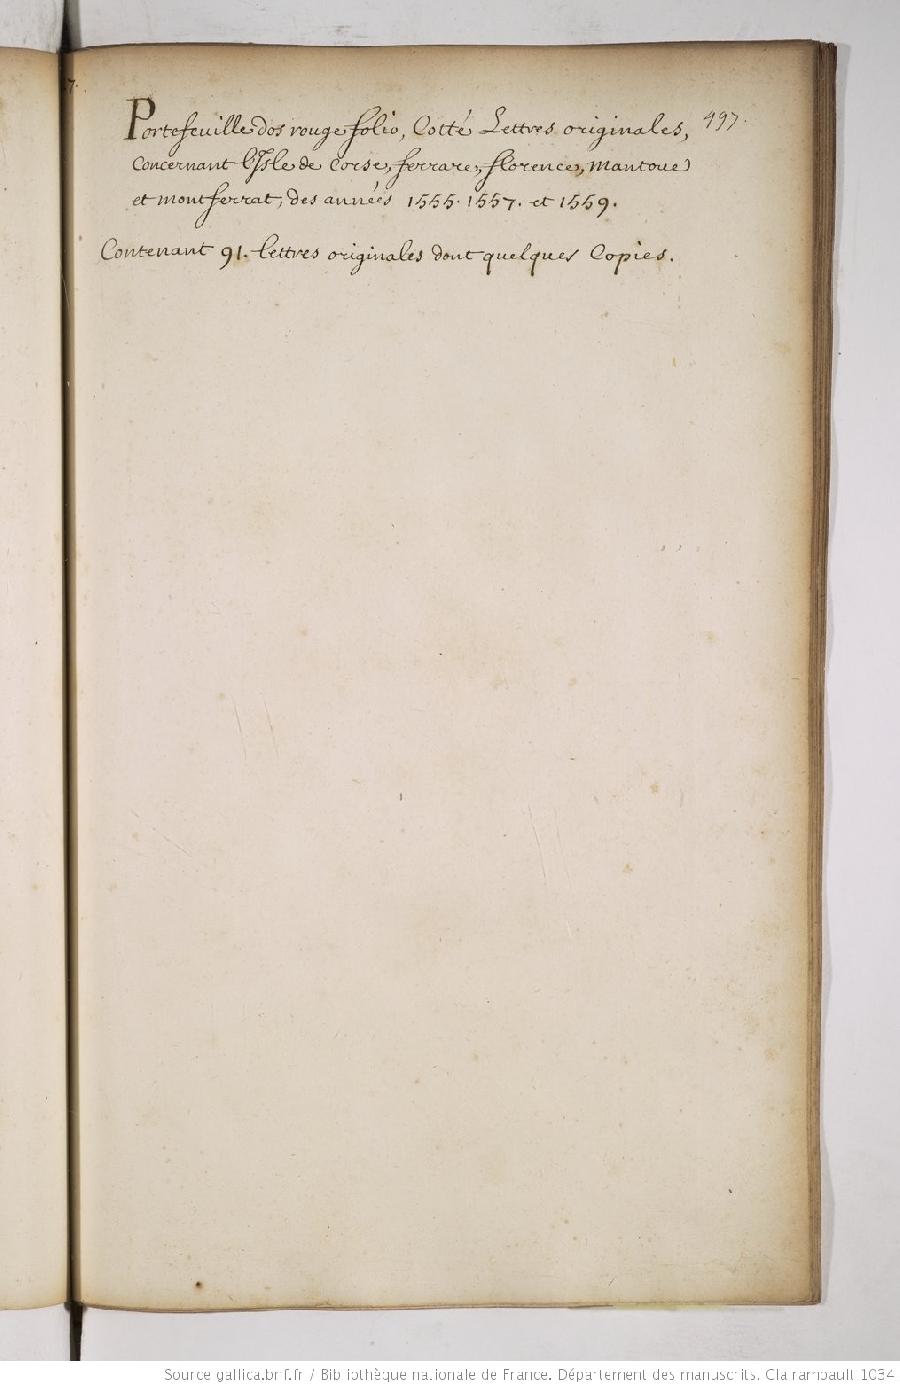 497.
Portefeuille dos rouge folio, Cotté Lettres originales,
Concernant l'Isle de Corse, ferrare, florence, Mantoue
et montferrat, des années 1555. 1557. et 1559.
Contenant 91. lettres originales dont quelques Copies.
Source gallica.bnf.fr / Bibliothèque nationale de France. Département des manuscrits. Clairambault 1034